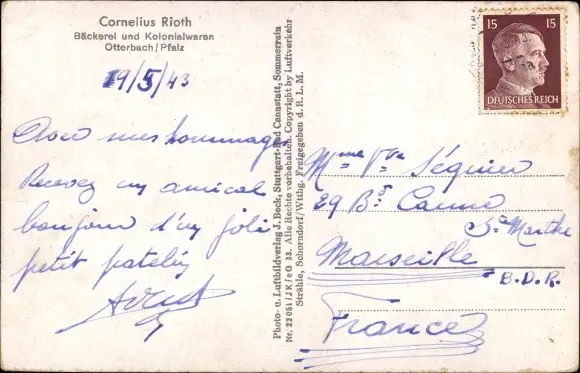 Cornelius Rioth
Bäckerei und Kolonialwaren
Otterbach/Pfalz
19/5/43
Avec mes hommages
Recevez un amical
bonjour d'un joli
petit patelin
Photo- u. Luftbildverlag J. Beck, Stuttgart-Bad Cannstatt, Sommerrain
Nr. 22051/JK/eG 33. Alle Rechte vorbehalten. Copyright by Luftverkehr
Strähle, Schorndorf/Wttbg. Freigegeben d. R.L.M.
15 15
DEUTSCHES REICH
Mme Vve Séguier
29 Bd
Ste Marthe
Marseille
B.D.R.
France